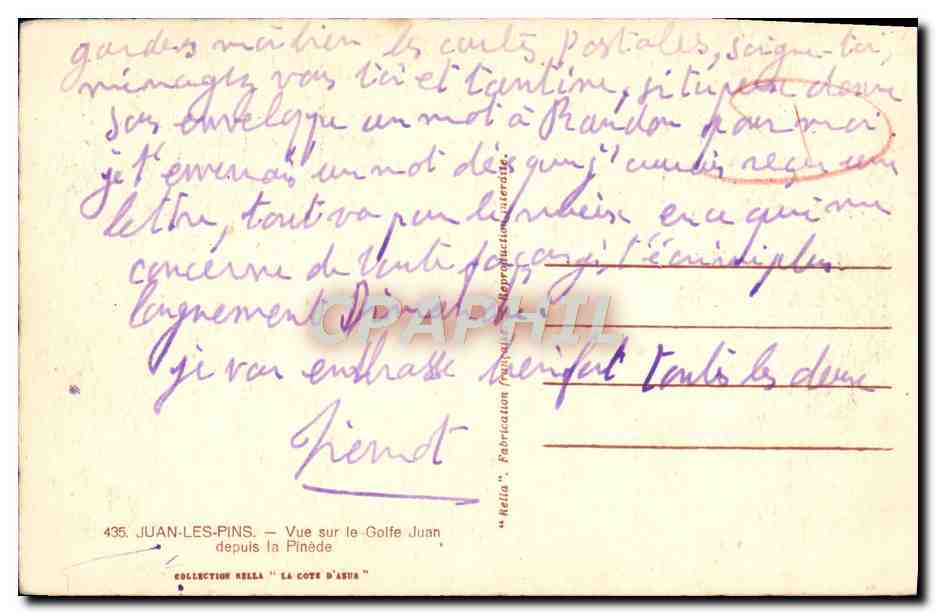 gardes moi bien les cartes postales, soigne-toi,
ménagez vous toi et tantine, si tu peux donne
sous enveloppe un mot à Randon pour moi
je t'enverrais un mot dès que j'aurais reçu une
lettre, tout va pour le mieux en ce qui me
concerne de toute façon je t'écrirai plus
longuement Dimanche.
je vous embrasse bien fort toutes les deux
Pierrot
CPAPHIL
"Rella". Fabrication française - Reproduction interdite.
435. JUAN-LES-PINS. — Vue sur le Golfe Juan
depuis la Pinède
COLLECTION RELLA "LA COTE D'AZUR"